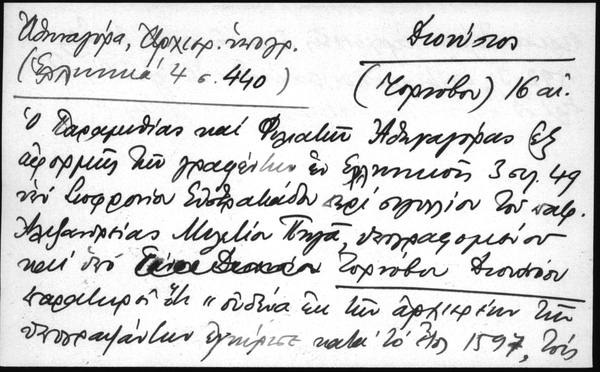 Ἀθηναγόρα, Ἀρχιερ. ὑπογρ.
(Ἑλληνικά 4 σ. 440)
Διονύσιος
(Τορνόβου) 16 αἰ.
Ὁ Παραμυθίας καί Φιλιατῶν Ἀθηναγόρας ἐξ
ἀφορμῆς τῶν γραφέντων ἐν Ἑλληνικοῖς 3 σελ. 49
ὑπό Σωφρονίου Εὐστρατιάδου περί σιγιλλίου τοῦ πατρ.
Ἀλεξανδρείας Μελετίου Πηγᾶ, ὑπογραφομένου
καί ὑπό Τορνόβου Διονυσίου
παρατηρεῖ ὅτι "οὐδένα ἐκ τῶν ἀρχιερέων τῶν
ὑπογραψάντων κατά τό ἔτος 1597, τούς